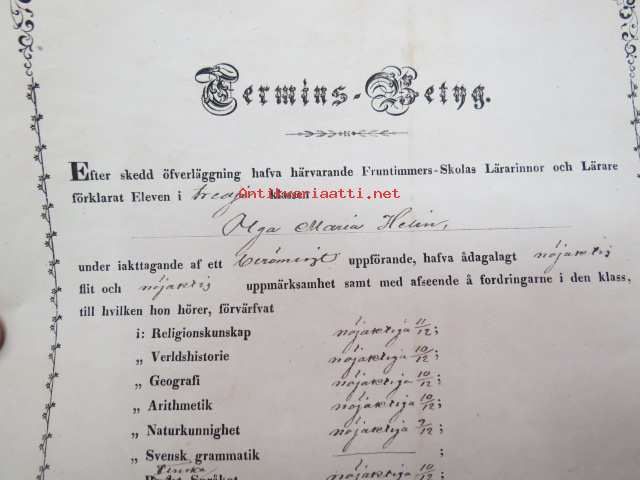 Termins-Betyg.
Efter skedd öfverläggning hafva härvarande Fruntimmers-Skolas Lärarinnor och Lärare
förklarat Eleven i tredje klassen
Antikvariaatti.net
Olga Maria Helin,
under iakttagande af ett berömligt uppförande, hafva ådagalagt nöjaktig
flit och nöjaktig uppmärksamhet samt med afseende å fordringarne i den klass,
till hvilken hon hörer, förvärfvat
i: Religionskunskap nöjaktiga 11/12;
„ Verldshistorie nöjaktiga 10/12;
„ Geografi nöjaktiga 10/12;
„ Arithmetik nöjaktiga 10/12;
„ Naturkunnighet nöjaktiga 9/12;
„ Svensk grammatik ;
Finska
Språket nöjaktiga 10/12;